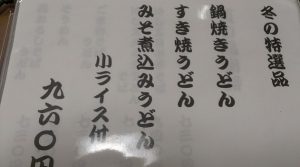 冬の特選品
鍋焼きうどん
すき焼うどん
みそ煮込みうどん
小ライス付
九六〇円